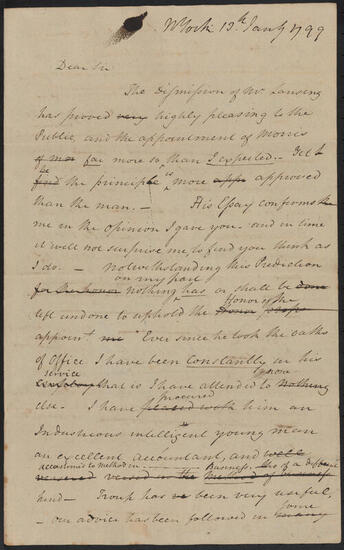 N York 13th Jany 1799
Dear Sir
The dismission of Mr Lansing
has proved very highly pleasing to the
Public, and the appointment of Morris
far more so than I expected. - Yet
the
the principle is more approved
than the man. - His Essay confirms
me in the Opinion I gave you - and in time
it will not surprise me to find you think as
I do. - Notwithstanding this Prediction
on my part
for the honor nothing has or shall be done
Honor of the
left undone to uphold the
appointt me Ever since he took the oaths
of Office I have been Constantly in his
service know
that is I have attended to nothing
procured
else - I have him an
Industrious intelligent young man
an excellent accountant, and well
accustomed to method in Business. also of a different
versed in the method of business
kind - Troup has been very useful,
some
- our advice has been followed in many